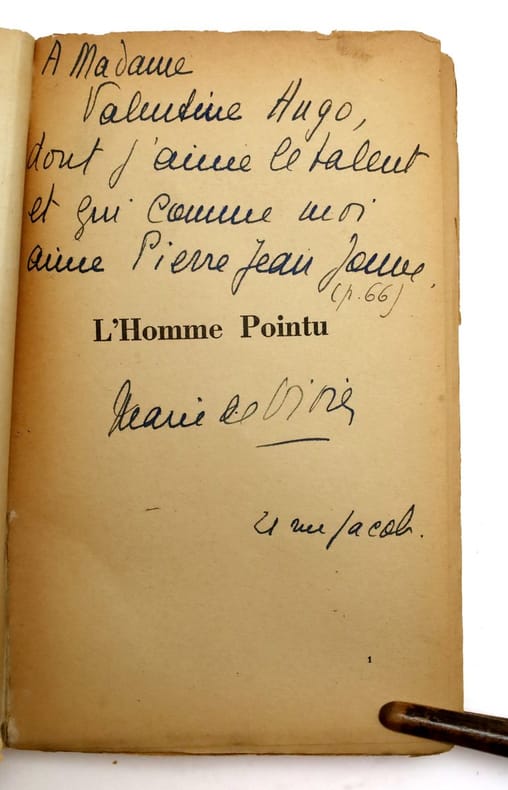 A Madame
Valentine Hugo,
dont j'aime le talent
et qui comme moi
aime Pierre Jean Jouve.
(p. 66)
L'Homme Pointu
Marie de Vivier
21 rue Jacob.
1